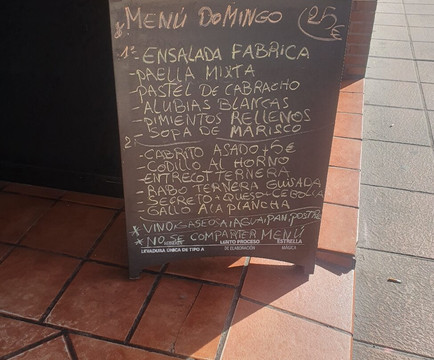 * MENÚ DOMINGO 25€
1º - ENSALADA FABRICA
- PAELLA MIXTA
- PASTEL DE CABRACHO
- ALUBIAS BLANCAS
- PIMIENTOS RELLENOS
- SOPA DE MARISCO
2º
- CABRITO ASADO +5€
- CODILLO AL HORNO
- ENTRECOT TERNERA
- RABO TERNERA GUISADA
- SECRETO + QUESO + CEBOLLA
- GALLO A LA PLANCHA
* VINO, GASEOSA, AGUA, PAN, POSTRE
* NO SE COMPARTE MENÚ
LEVADURA ÚNICA DE TIPO A
LENTO PROCESO DE ELABORACIÓN
ESTRELLA MÁGICA